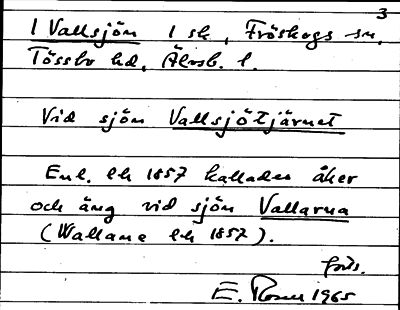 3
1 Vallsjön 1 sk, Fröskogs sn.
Tössbo hd, Älvsb. l.
Vid sjön Vallsjötjärnet
Enl. lh 1857 kallades åker
och äng vid sjön Vallarna
(Wallane lh 1857).
forts.
E. Rosen 1965